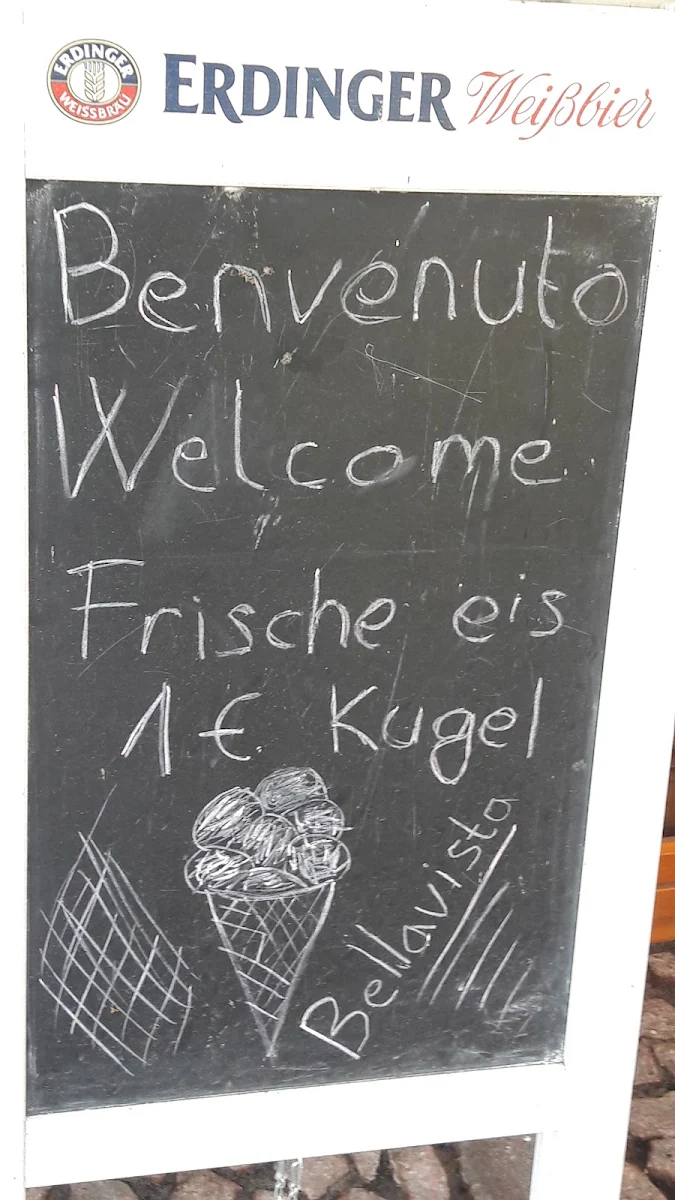 ERDINGER
WEISSBRÄU
ERDINGER Weißbier
Benvenuto
Welcome
Frische eis
1€ Kugel
Bellavista